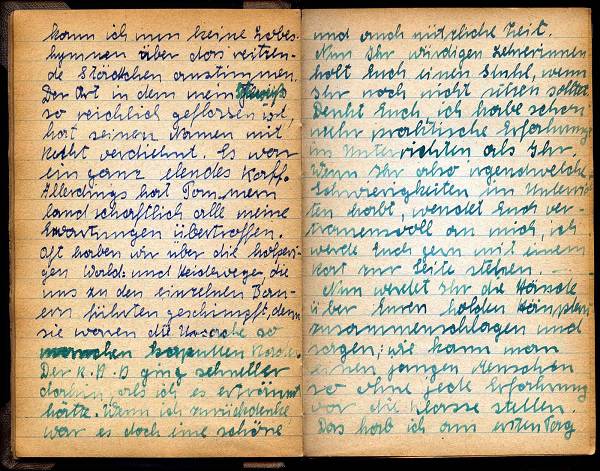 kann ich nun keine Lobes-
hymnen über das reizen-
de Städtchen anstimmen.
Der Ort in dem mein Schweiß
so reichlich geflossen ist,
hat seinen Namen mit
Recht verdiehnt. Es war
ein ganz elendes Kaff.
Allerdings hat Pom. mein
landschaftlich alle meine
Erwartungen übertroffen.
Oft haben wir über die holperi-
gen Wald- und Heidewege, die
uns zu den einzelnen Bau-
ern führten geschimpft, denn
sie waren die Ursache so
manchen kaputten Rades.
Der K.B.D ging schneller
dorhin, als ich es erträumt
hätte. Wenn ich zurückdenke
war es doch eine schöne
und auch nützliche Zeit.
Nun Ihr würdigen Lehrerinnen
holt Euch einen Stuhl, wenn
Ihr noch nicht sitzen solltet.
Denkt Euch, ich habe schon
mehr praktische Erfahrung
im Unterrichten als Ihr.
Wenn Ihr also irgendwelche
Schwierigkeiten im Unterrich-
ten habt, wendet Euch ver-
trauensvoll an mich, ich
werde Euch gern mit einem
Rat zur Seite stehen. —
Nun werdet Ihr die Hände
über Euren holden Häuptern
zusammenschlagen und
sagen: wie kann man
einen jungen Menschen
so ohne jede Erfahrung
vor die Klasse stellen.
Das hab ich am ersten Tage